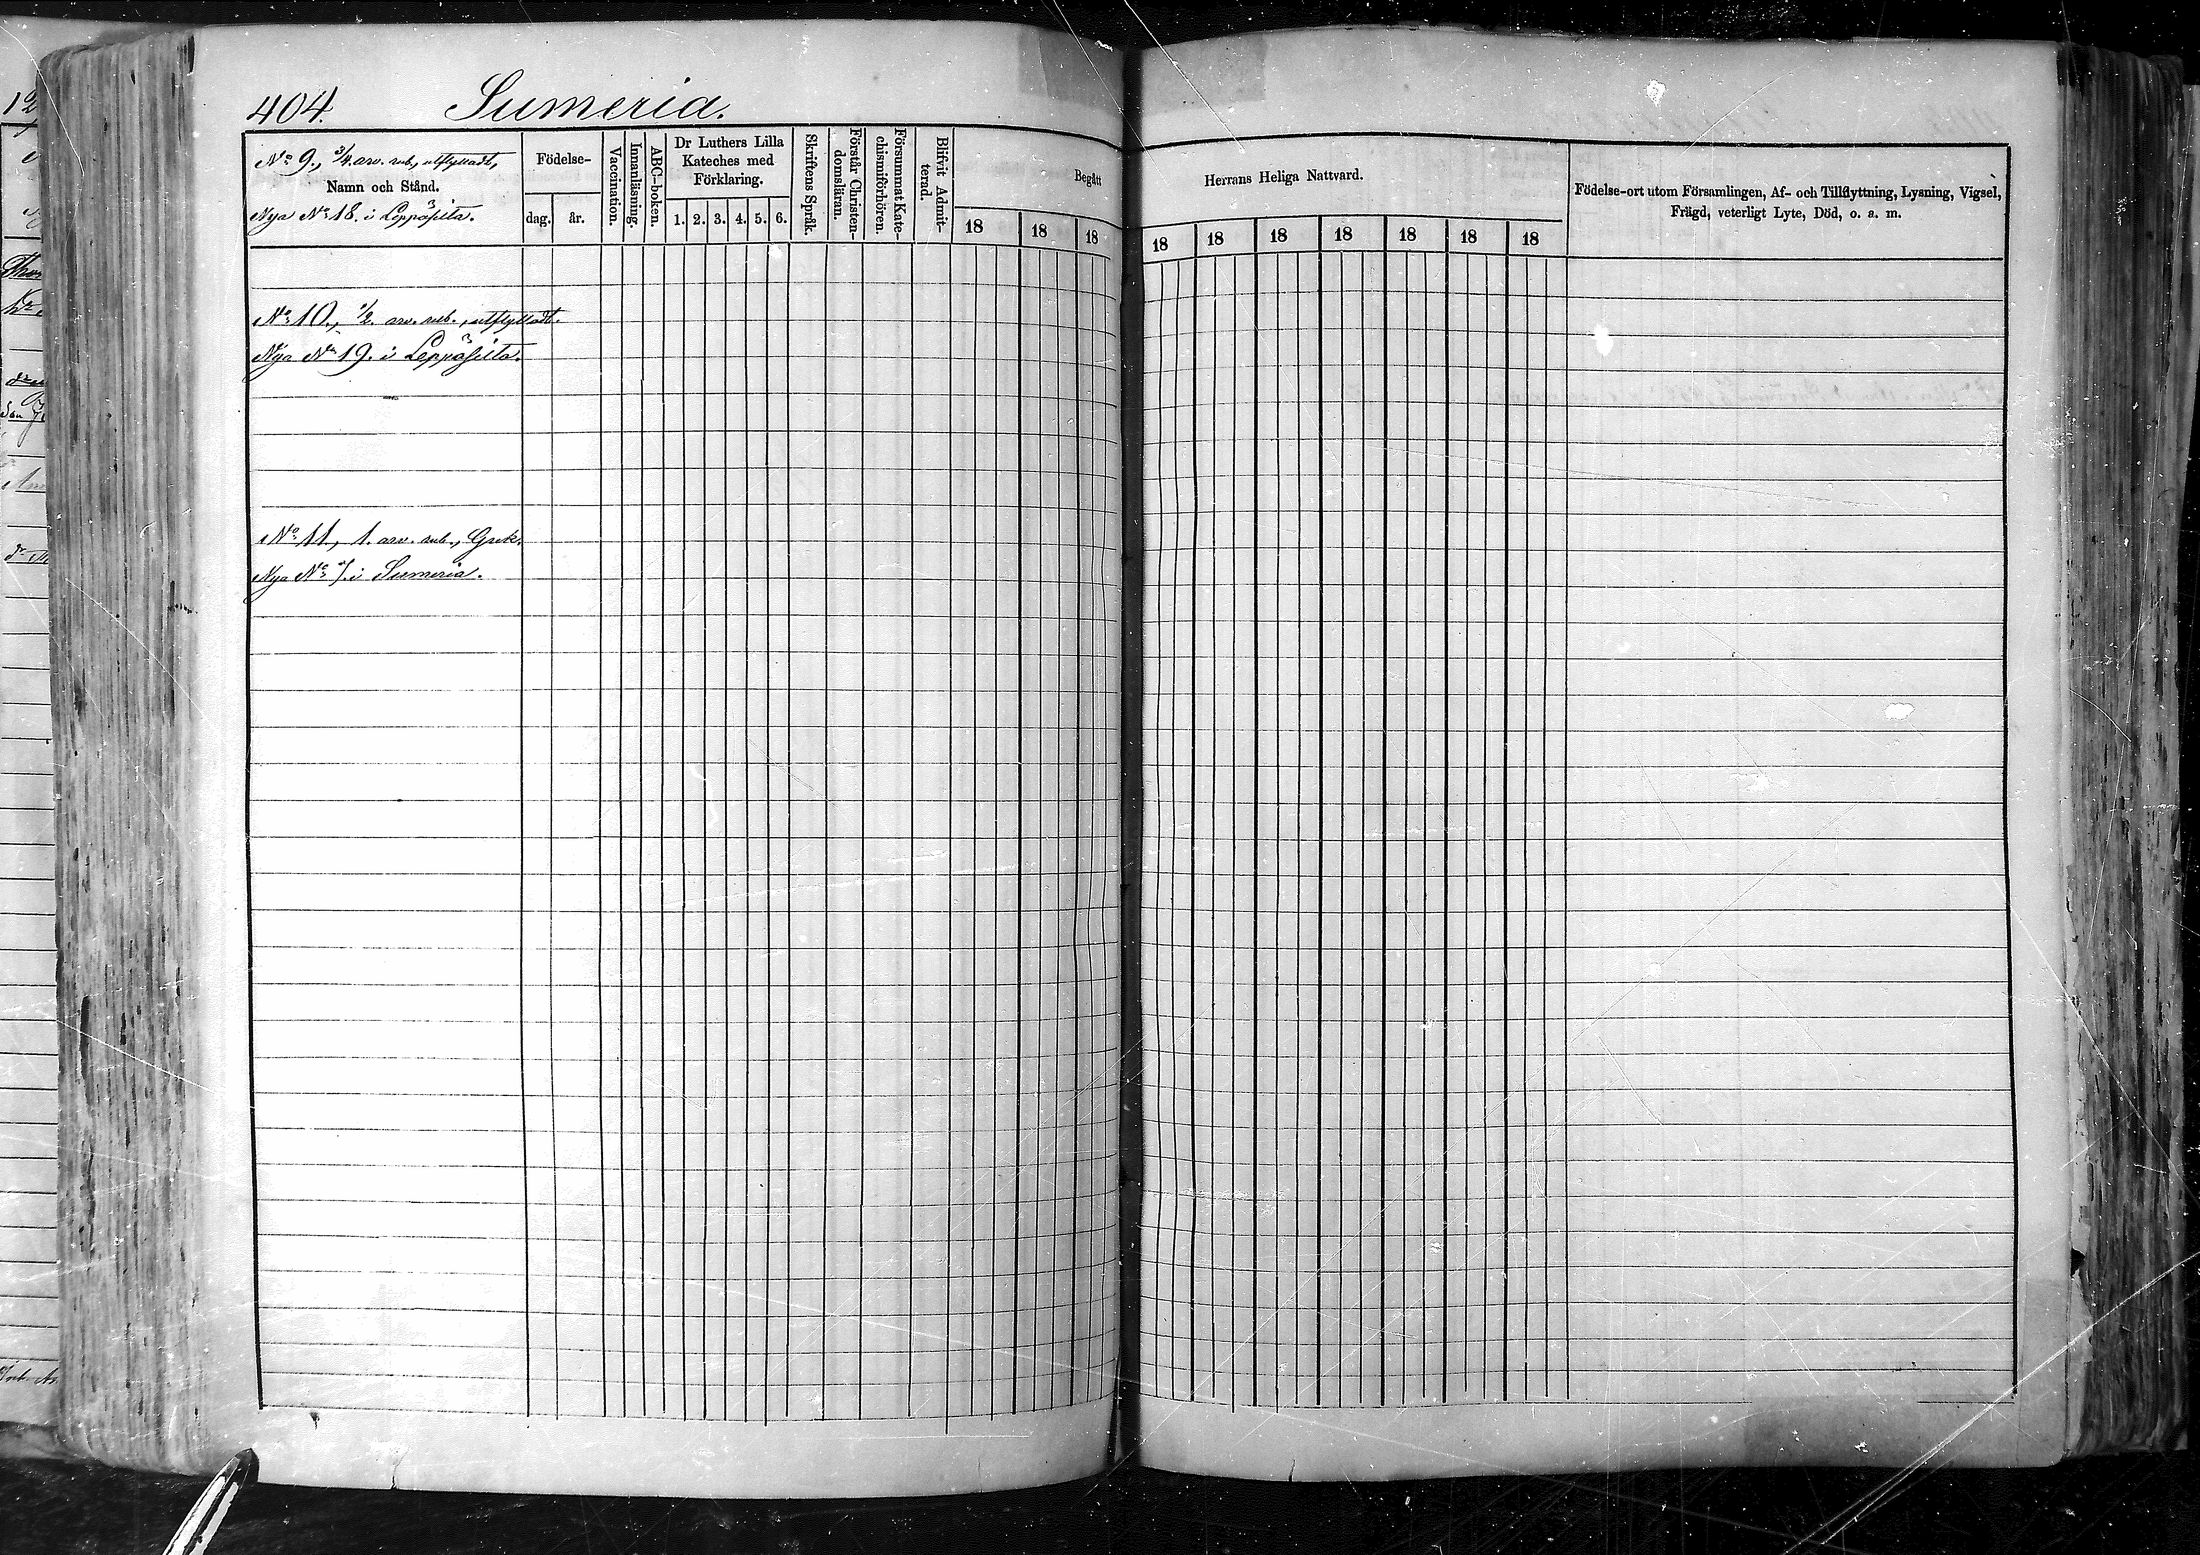 404. Sumeria.
No 9., 3/4. arv. rub., utflyttadt,
Namn och Stånd.
Nya No 18. i Leppäsilta.
Födelse-
dag. år.
Vaccination.
Innanläsning.
ABC-boken.
Dr Luthers Lilla
Kateches med
Förklaring.
1. 2. 3. 4. 5. 6.
Skriftens Språk.
Förstår Christen-
domsläran.
Försummat Kate-
chismiförhören.
Blifvit Admit-
terad.
Begått
18 18 18
Herrans Heliga Nattvard.
18 18 18 18 18 18 18
Födelse-ort utom Församlingen, Af- och Tillflyttning, Lysning, Vigsel,
Frägd, veterligt Lyte, Död, o. a. m.
No 10., 1/2. arv. rub., utflyttadt.
Nya No 19. i Leppäsilta.
No 11., 1. arv. rub., Grek.
Nya No 7. i Sumeria.